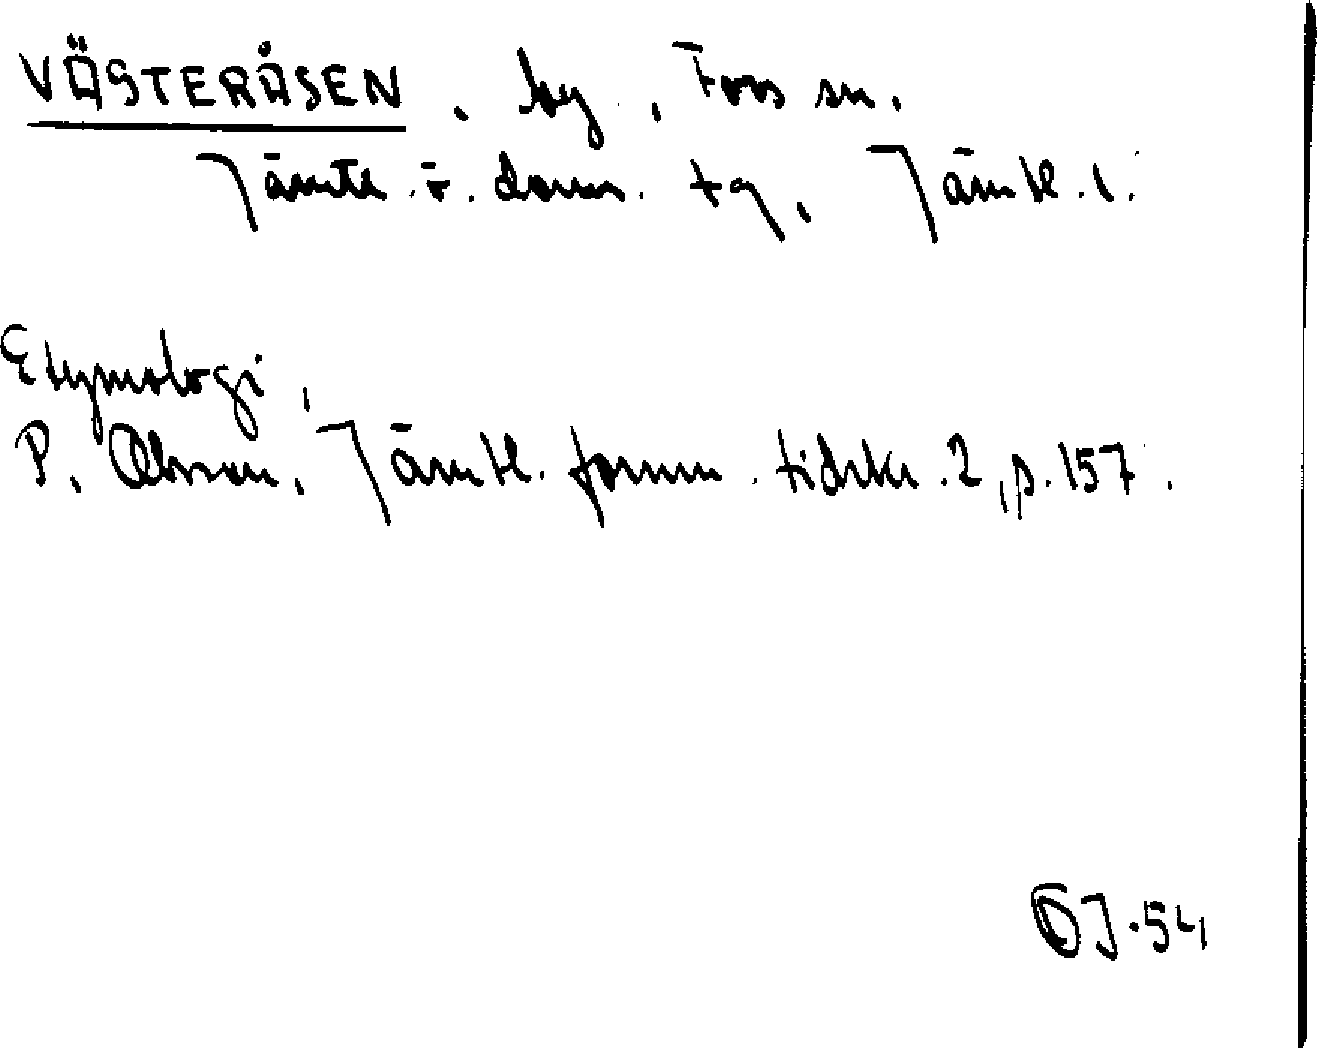 VÄSTERÅSEN, by, Fors sn.
Jämtl. ö. doms. tg, Jämtl. l.
Etymologi,
P. Olsson, Jämtl. fornm. tidskr. 2, p. 157.
ÖJ·54